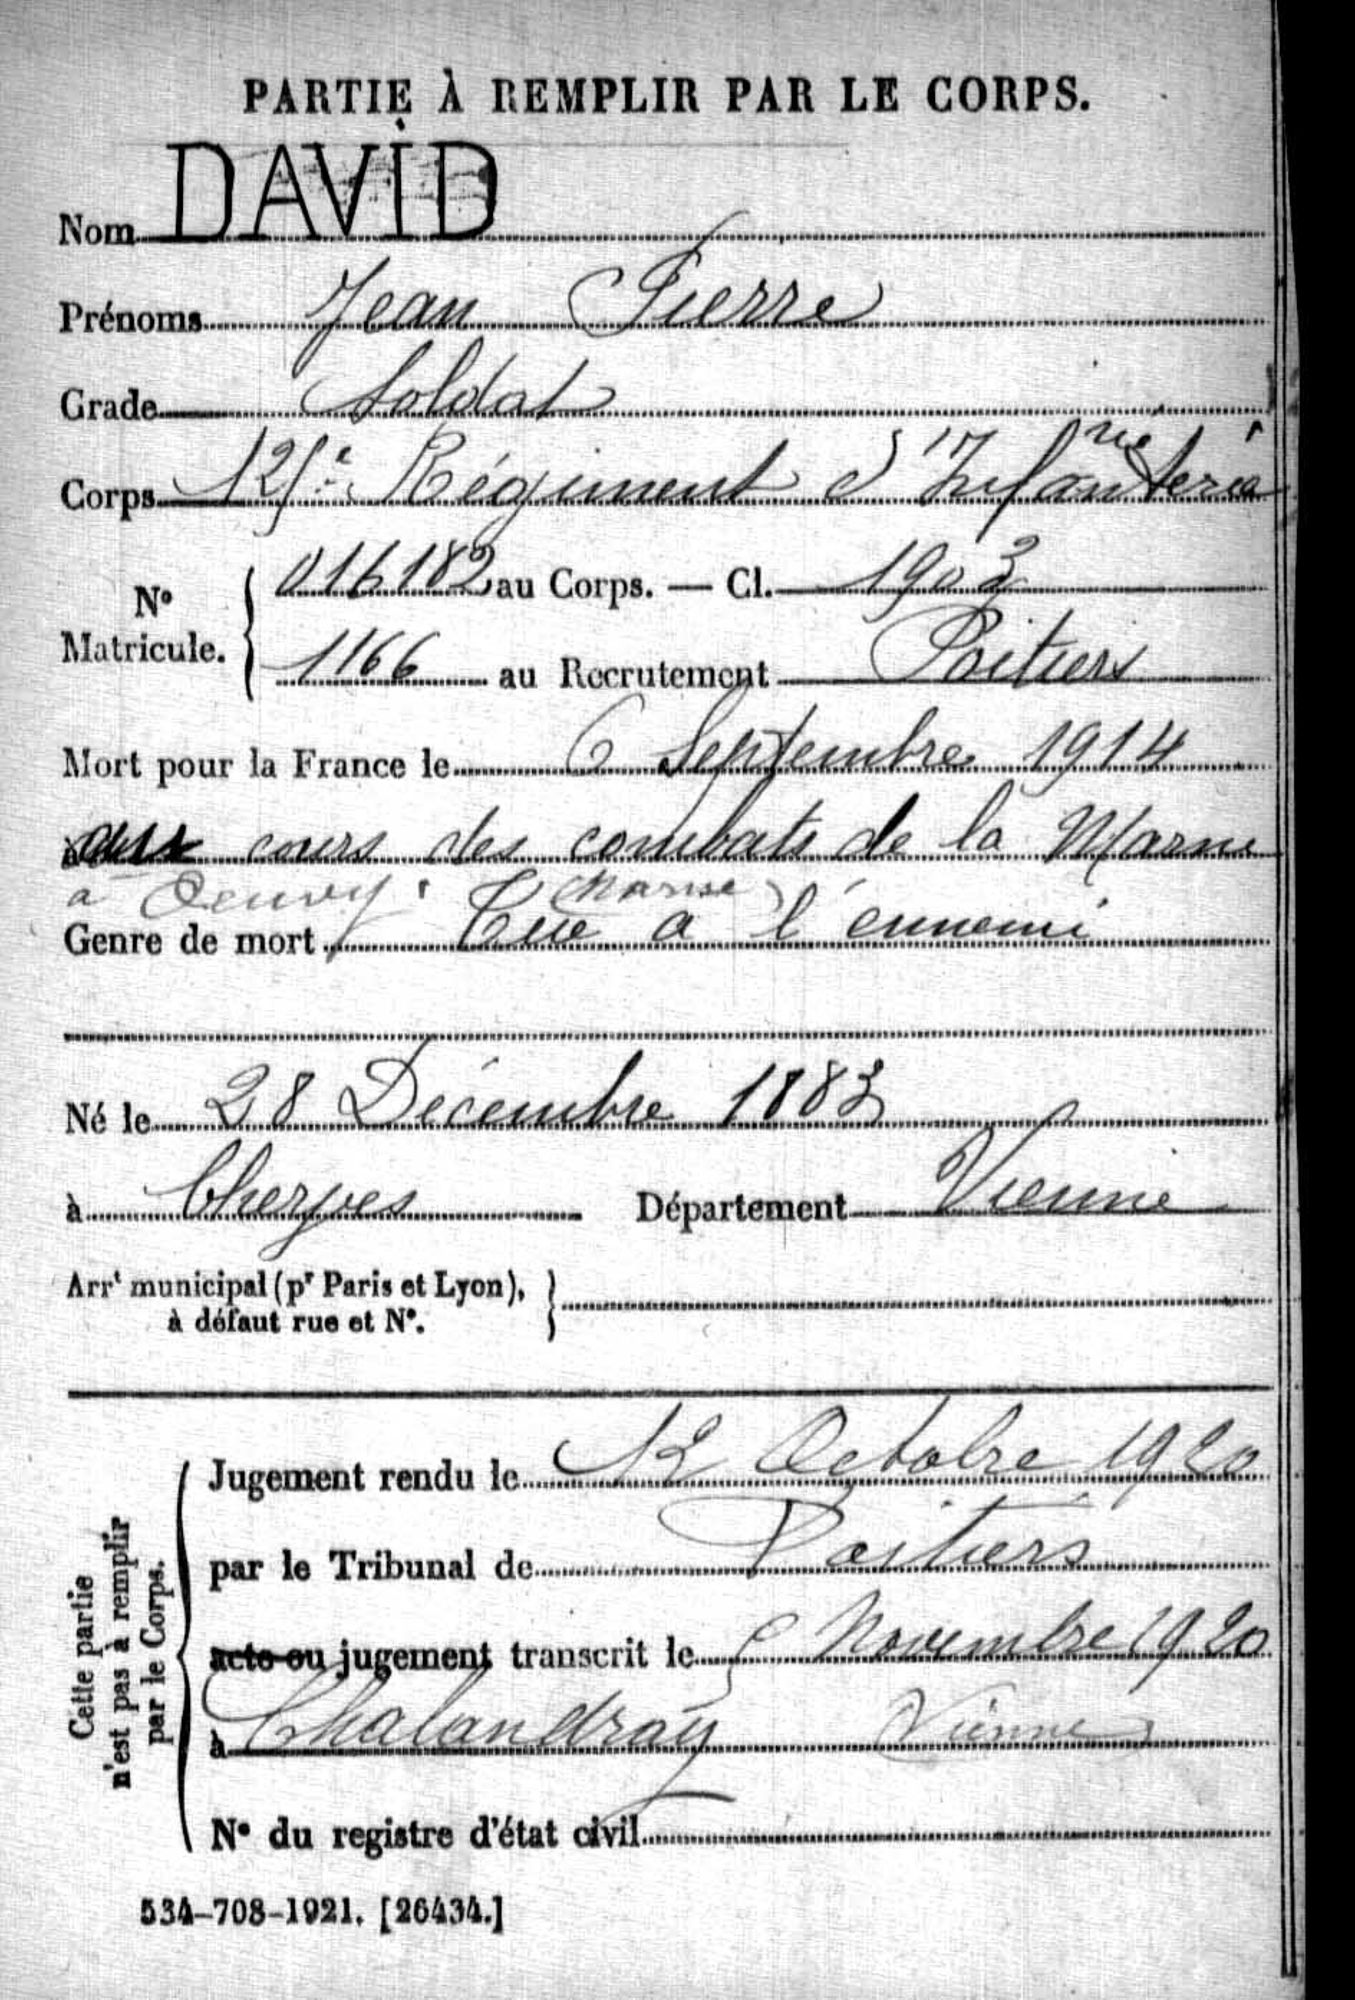 PARTIE À REMPLIR PAR LE CORPS.
Nom DAVID
Prénoms Jean Pierre
Grade Soldat
Corps 125e Régiment d'Infanterie
N° Matricule. 016182 au Corps. — Cl. 1903
1166 au Recrutement Poitiers
Mort pour la France le 6 Septembre 1914
au cours des combats de la Marne
à Oeuvy (Marne)
Genre de mort Tué à l'ennemi
Né le 28 Décembre 1883
à Cherves Département Vienne
Arrt municipal (pr Paris et Lyon),
à défaut rue et N°.
Cette partie
n'est pas à remplir
par le Corps.
Jugement rendu le 12 Octobre 1920
par le Tribunal de Poitiers
acte ou jugement transcrit le 5 Novembre 1920
à Chalandray Vienne
N° du registre d'état civil
534-708-1921. [26434.]